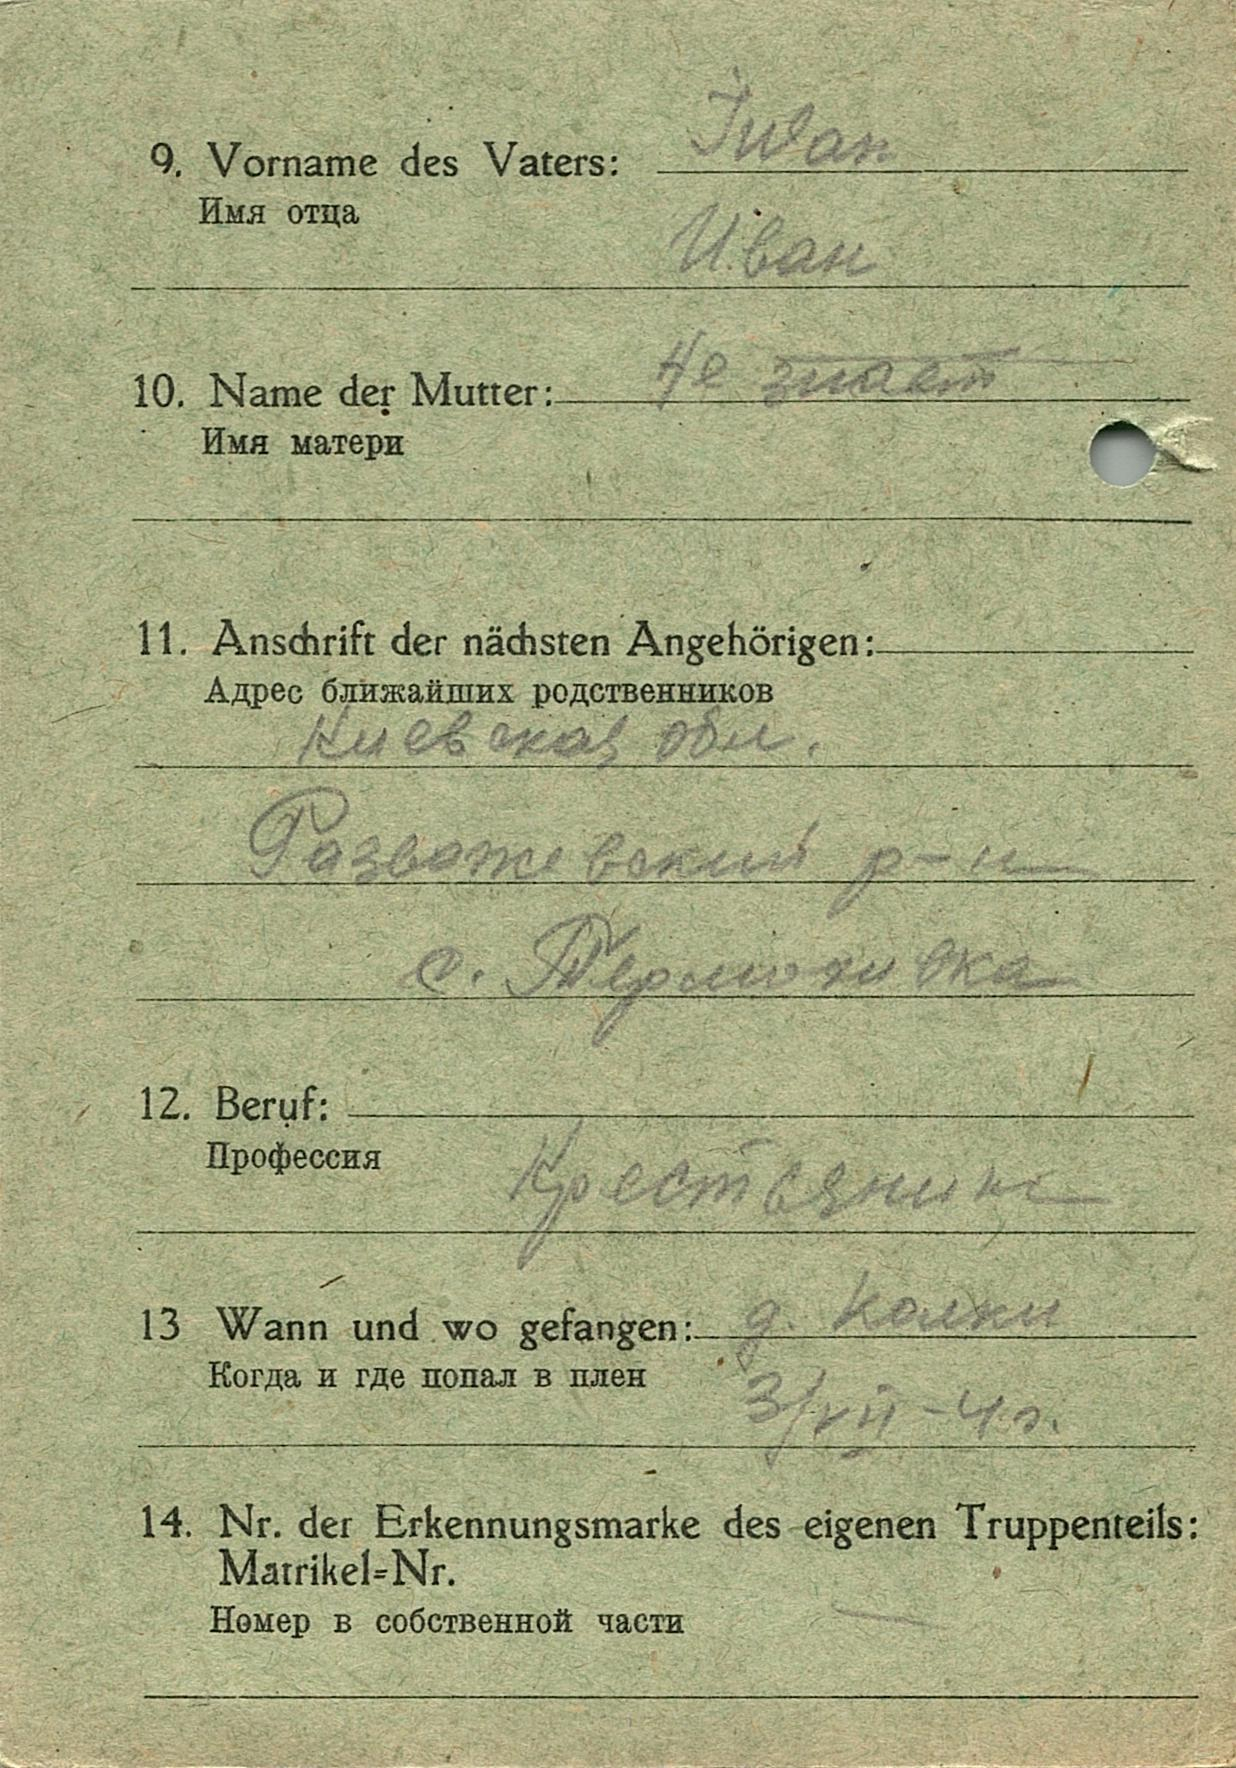 9. Vorname des Vaters: Iwan
Имя отца
Иван
10. Name der Mutter: Не знает
Имя матери
11. Anschrift der nächsten Angehörigen:
Адрес ближайших родственников
Киевская обл.
Розважевский р-н
с. Термоховка
12. Beruf:
Профессия
Крестьянин
13 Wann und wo gefangen: д. Колки
Когда и где попал в плен
3/VII-41.
14. Nr. der Erkennungsmarke des eigenen Truppenteils:
Matrikel=Nr.
Номер в собственной части